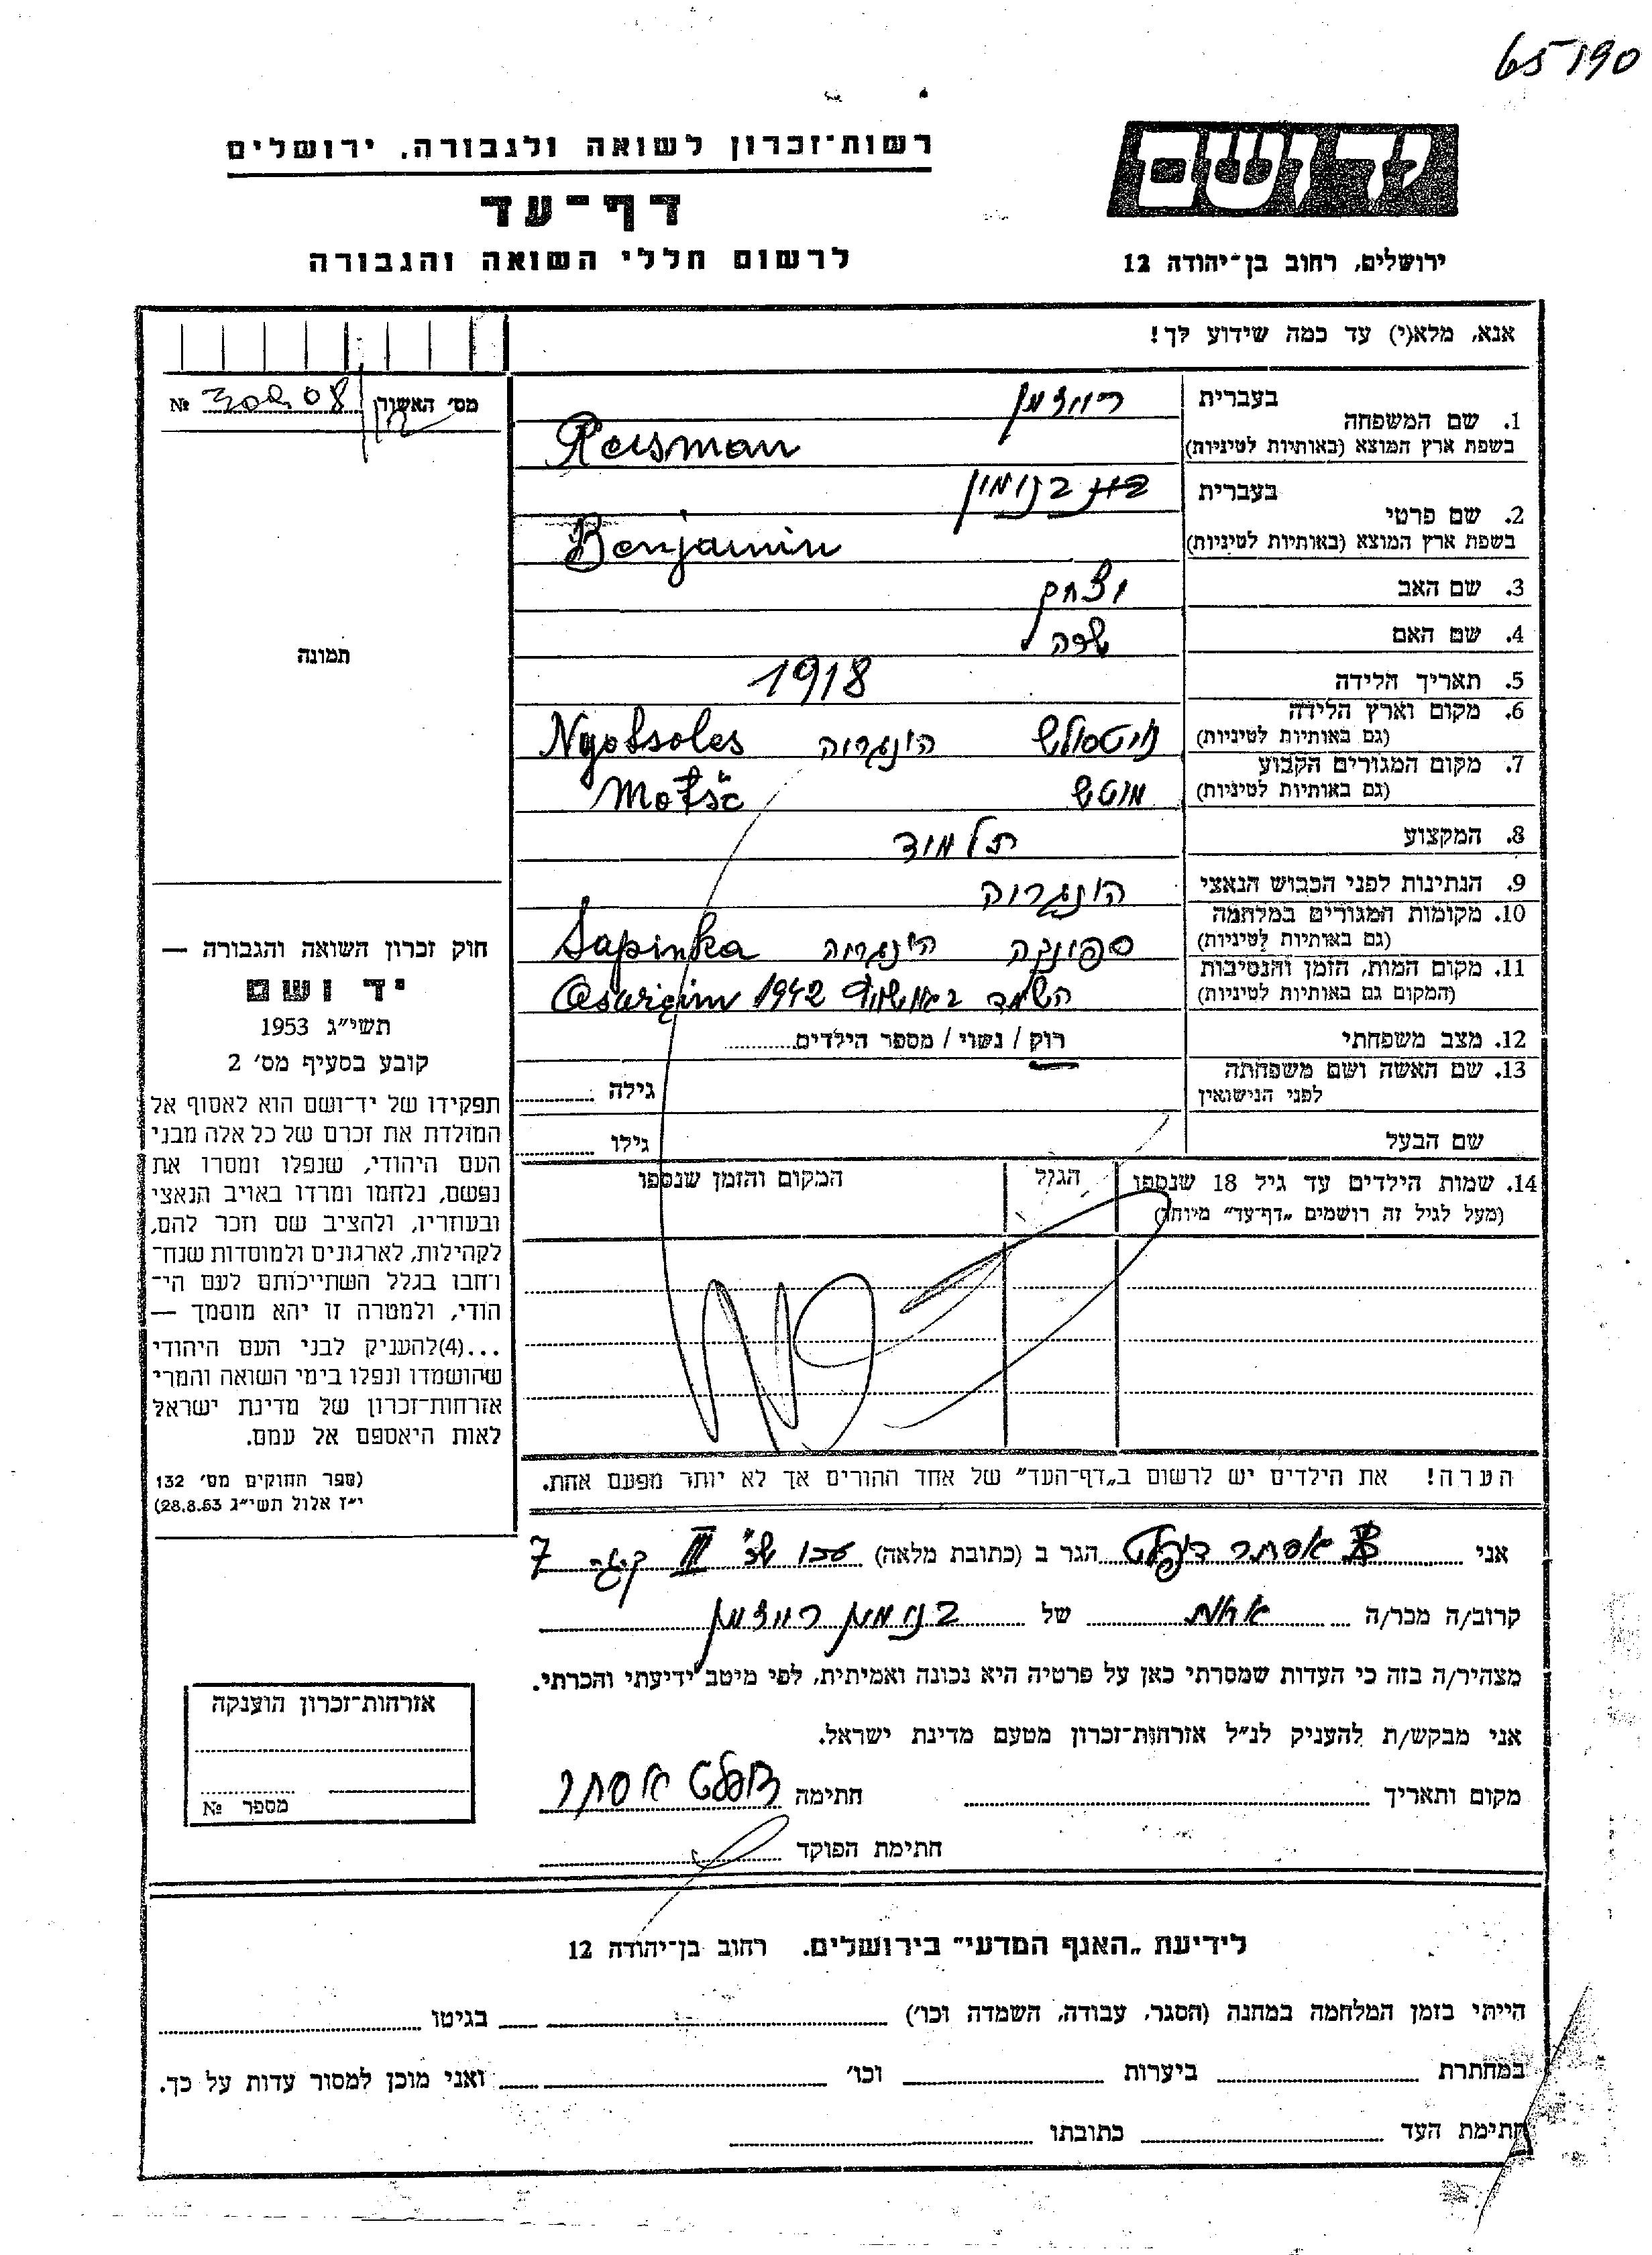 65190
ידושם
רשות־זכרון לשואה ולגבורה, ירושלים
דף־עד
לרשום חללי השואה והגבורה
ירושלים, רחוב בן־יהודה 12
אנא, מלא(י) עד כמה שידוע לך!
מס' האשור № 30208
1. שם המשפחה
בעברית רייזמן
בשפת ארץ המוצא (באותיות לטיניות) Reisman
2. שם פרטי
בעברית בנימין
בשפת ארץ המוצא (באותיות לטיניות) Benjamin
3. שם האב יצחק
4. שם האם שרה
5. תאריך הלידה 1918
6. מקום וארץ הלידה
(גם באותיות לטיניות) הונגריה Nyotsoles
7. מקום המגורים הקבוע
(גם באותיות לטיניות) מוטש
8. המקצוע תלמיד
9. הנתינות לפני הכבוש הנאצי הונגריה
10. מקומות המגורים במלחמה
(גם באותיות לטיניות) ספינקה הונגריה Sapinka
11. מקום המות, הזמן והנסיבות
(המקום גם באותיות לטיניות) 1942
12. מצב משפחתי רוק / נשוי / מספר הילדים
13. שם האשה ושם משפחתה
לפני הנישואין גילה
שם הבעל גילו
14. שמות הילדים עד גיל 18 שנספו
(מעל לגיל זה רושמים „דף־עד" מיוחד)
הגיל
המקום והזמן שנספו
הערה! את הילדים יש לרשום ב„דף־העד" של אחד ההורים אך לא יותר מפעם אחת.
תמונה
חוק זכרון השואה והגבורה —
יד ושם
תשי"ג 1953
קובע בסעיף מס' 2
תפקידו של יד־ושם הוא לאסוף אל
המולדת את זכרם של כל אלה מבני
העם היהודי, שנפלו ומסרו את
נפשם, נלחמו ומרדו באויב הנאצי
ובעוזריו, ולהציב שם וזכר להם,
לקהילות, לארגונים ולמוסדות שנח־
רבו בגלל השתייכותם לעם הי־
הודי, ולמטרה זו יהא מוסמך —
...(4)להעניק לבני העם היהודי
שהושמדו ונפלו בימי השואה והמרי
אזרחות־זכרון של מדינת ישראל
לאות היאספם אל עמם.
(ספר החוקים מס' 132
י"ז אלול תשי"ג 28.8.53)
אני אסתר הגר ב (כתובת מלאה) עכו III 7
קרוב/ה מכר/ה אחות של בנימין רייזמן
מצהיר/ה בזה כי העדות שמסרתי כאן על פרטיה היא נכונה ואמיתית, לפי מיטב ידיעתי והכרתי.
אני מבקש/ת להעניק לנ"ל אזרחות־זכרון מטעם מדינת ישראל.
מקום ותאריך חתימה אסתר
חתימת הפוקד
אזרחות־זכרון הוענקה
מספר №
לידיעת „האגף המדעי" בירושלים. רחוב בן־יהודה 12
הייתי בזמן המלחמה במחנה (הסגר, עבודה, השמדה וכו') בגיטו
במחתרת ביערות וכו' ואני מוכן למסור עדות על כך.
חתימת העד כתובתו